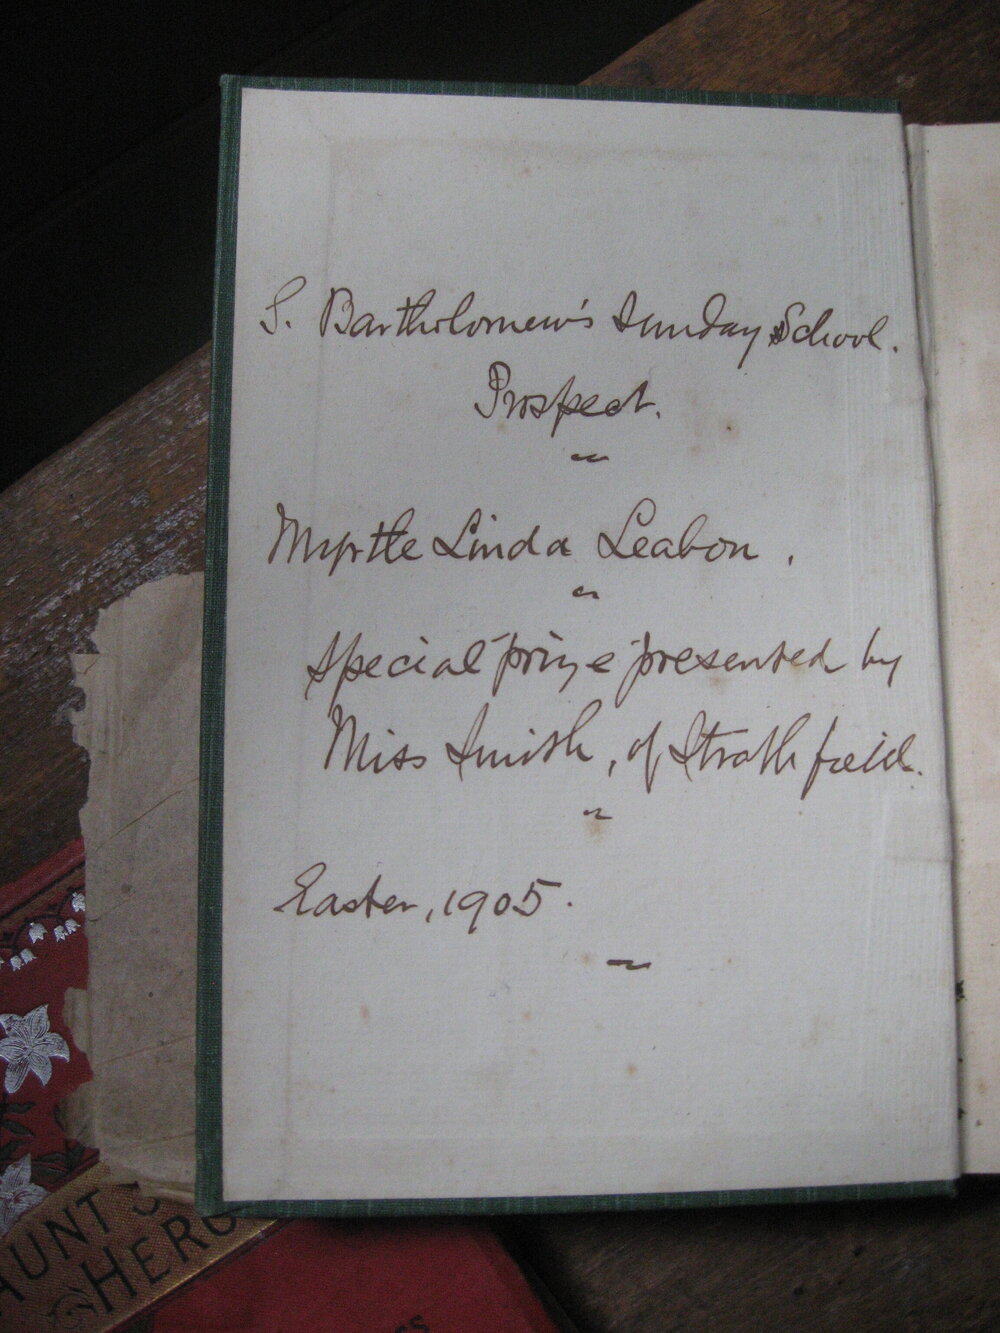 S. Bartholomew's Sunday School.
Prospect.
Myrtle Linda Leabon.
Special prize presented by
Miss Smith, of Strathfield.
Easter, 1905.
AUNT
HERO